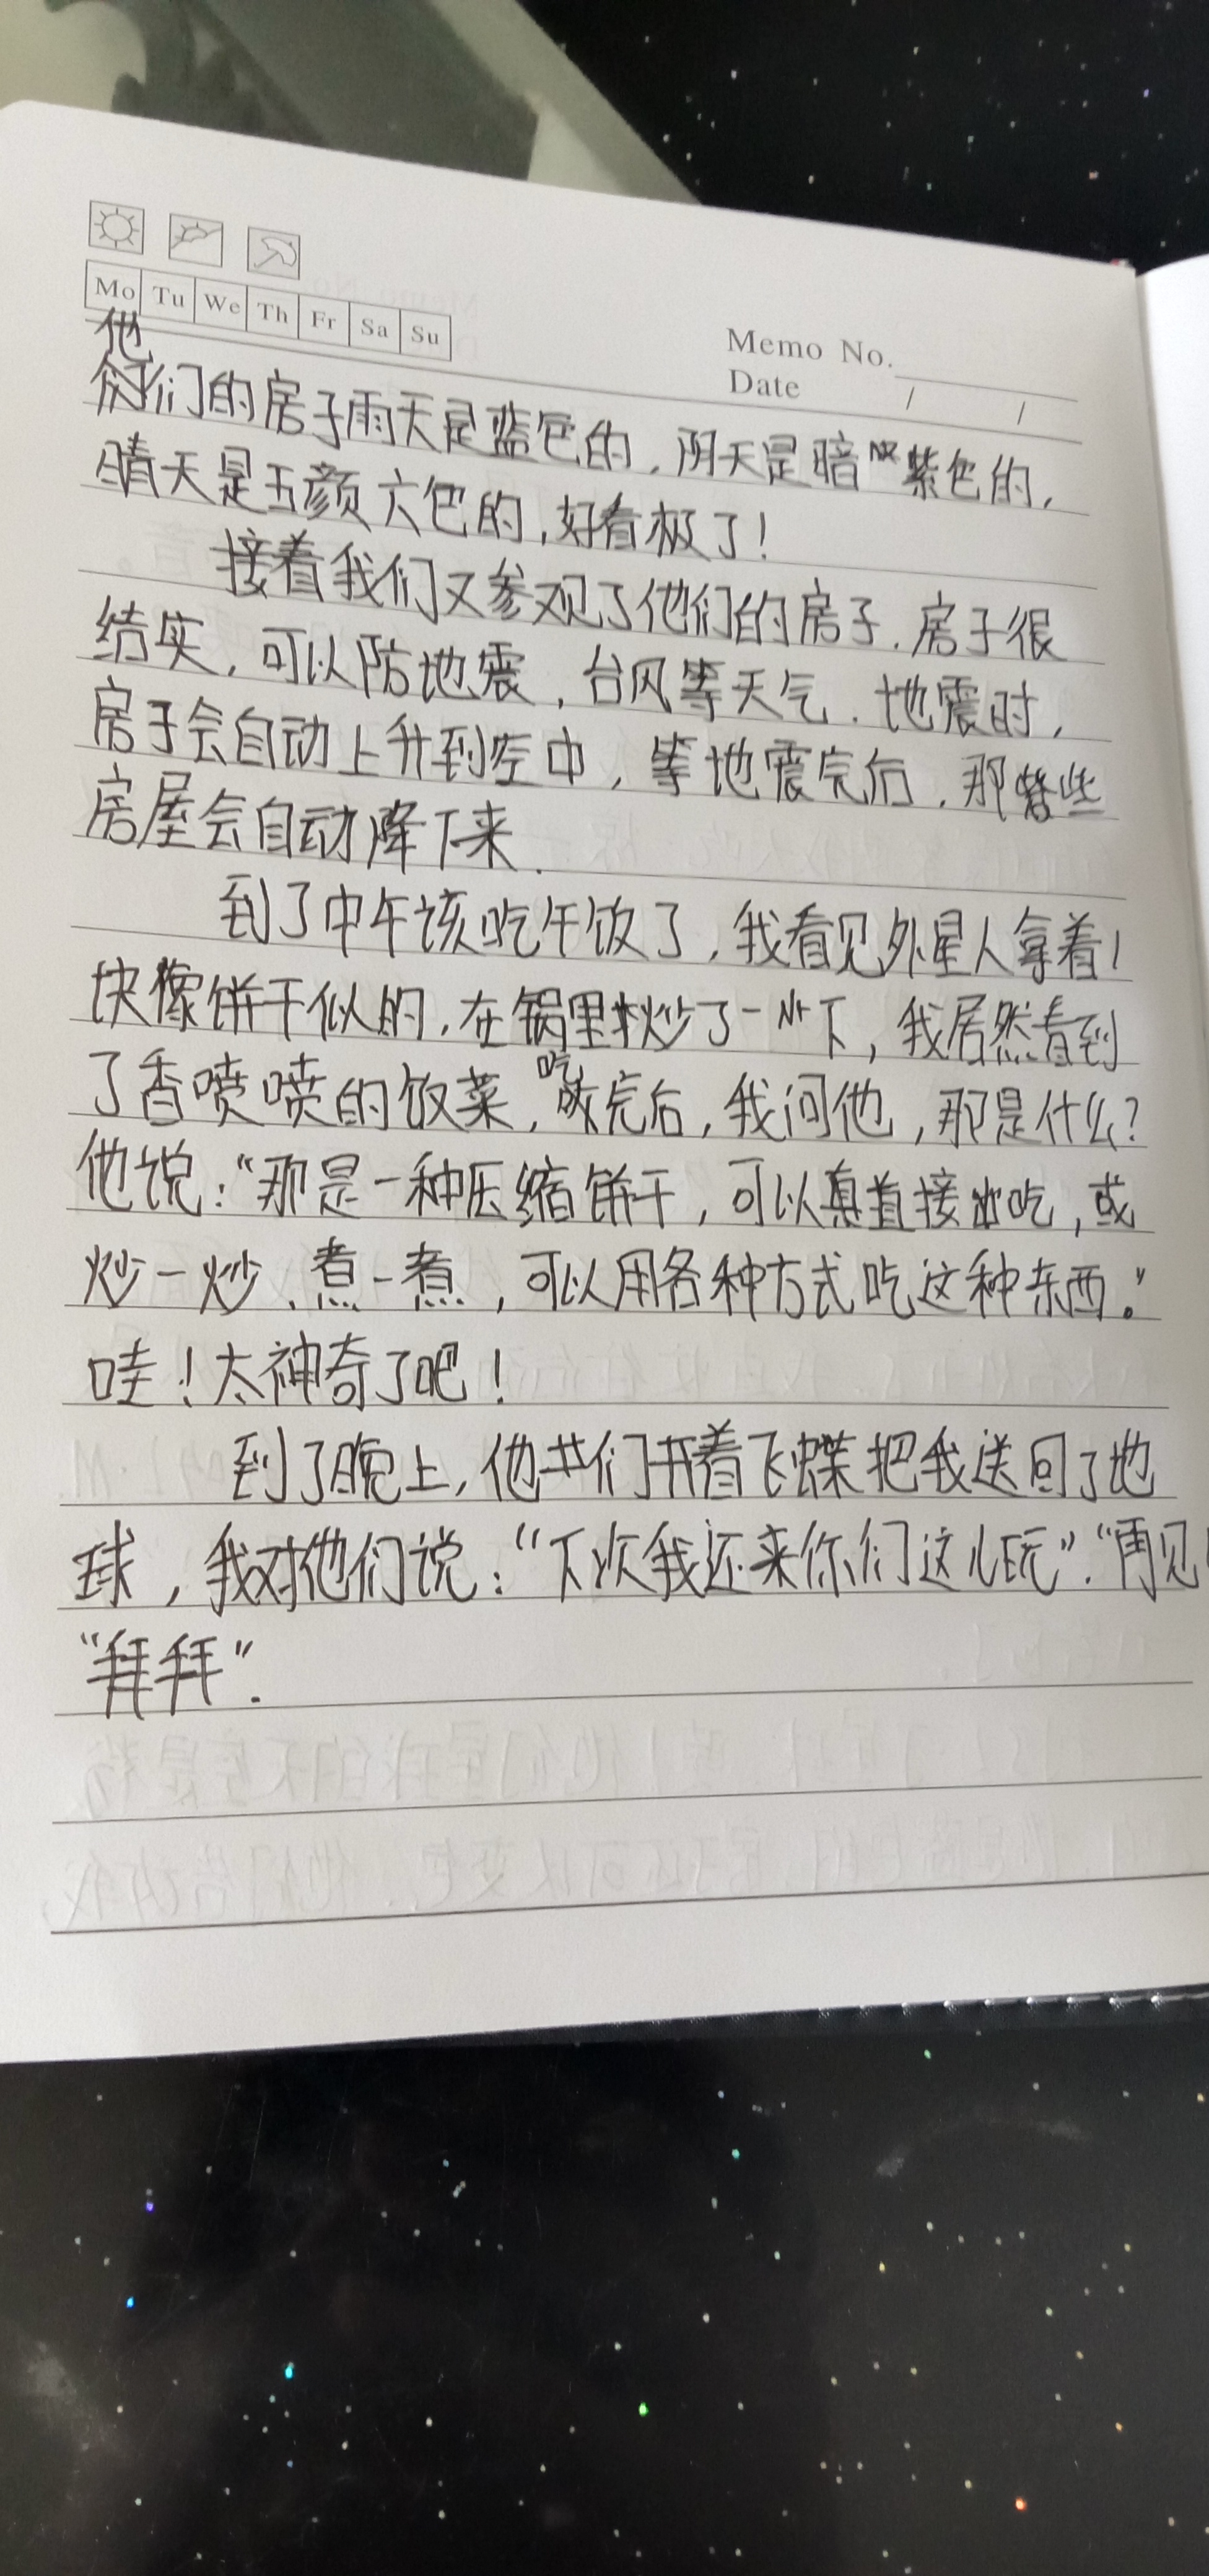 Mo Tu We Th Fr Sa Su
Memo No.
Date / /
他
们的房子雨天是蓝色的，阴天是暗紫色的，
晴天是五颜六色的，好看极了！
接着我们又参观了他们的房子．房子很
结实，可以防地震，台风等天气．地震时，
房子会自动上升到空中，等地震完后，那些
房屋会自动降下来．
到了中午该吃午饭了，我看见外星人拿着1
块像饼干似的，在锅里炒了一下，我居然看到
了香喷喷的饭菜，吃完后，我问他，那是什么？
他说：“那是一种压缩饼干，可以直接吃，或
炒一炒、煮一煮，可以用各种方式吃这种东西。”
哇！太神奇了吧！
到了晚上，他们开着飞蝶把我送回了地
球，我对他们说：“下次我还来你们这儿玩”．“再见
“拜拜”．